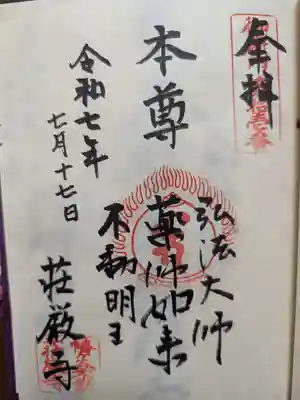 奉拝
弘法大師
本尊
薬師如来
不動明王
令和七年
七月十七日
荘厳寺